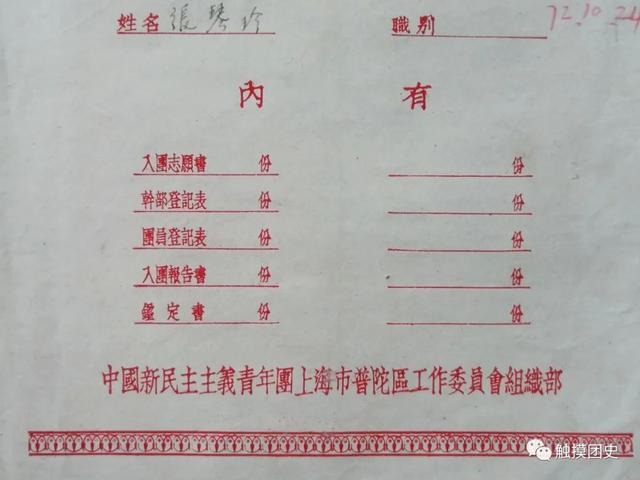 姓名 張琴珍 職別 72.10.24
內有
入團志願書 份 份
幹部登記表 份 份
團員登記表 份 份
入團報告書 份 份
鑑定書 份 份
中國新民主主義青年團上海市普陀區工作委員會組織部
触摸团史